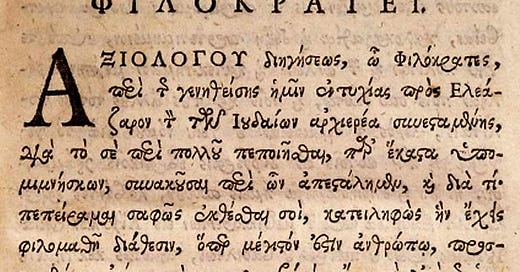 ΦΙΛΟΚΡΑΤΕΙ.
ΑΞΙΟΛΟΓΟΥ διηγήσεως, ὦ Φιλόκρατες,
περὶ τ γενηθείσης ἡμῖν ἐντυχίας πρὸς Ελεά-
ζαρον τ τῶν Ιουδαίων ἀρχιερέα συνεσταμένης,
διὰ τὸ σὲ περὶ πολλοῦ πεποιῆσθαι, παρ' ἕκαστα ὑπο-
μιμνήσκων, συνακοῦσαι περὶ ὧν ἀπεστάλημεν, κ διὰ τί·
πεπείραμαι σαφῶς ἐκθέσθαι σοι, κατειληφὼς ἣν ἔχεις
φιλομαθῆ διάθεσιν, ὅπερ μέγιστόν ἐστιν ἀνθρώπῳ, προσ-